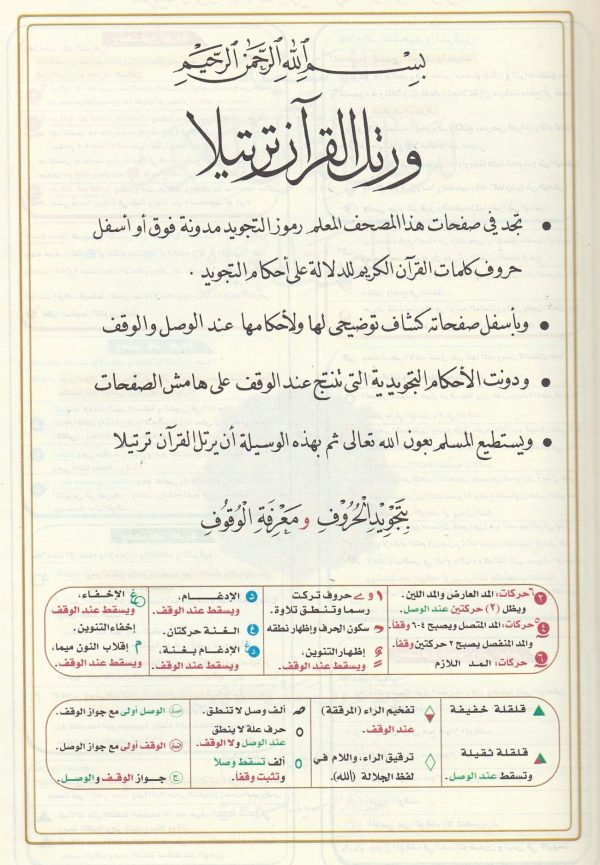 بسم الله الرحمن الرحيم
ورتل القرآن ترتيلا
• تجد في صفحات هذا المصحف المعلم رموز التجويد مدونة فوق أو أسفل
حروف كلمات القرآن الكريم للدلالة على أحكام التجويد .
• وبأسفل صفحاته كشاف توضيحي لها ولأحكامها عند الوصل والوقف
• ودونت الأحكام التجويدية التي تنتج عند الوقف على هامش الصفحات
• ويستطيع المسلم بعون الله تعالى ثم بهذه الوسيلة أن يرتل القرآن ترتيلا
بِتَجْوِيدِ الْحُرُوفِ وَمَعْرِفَةِ الْوُقُوفِ
٢ حركات: المد العارض والمد اللين.
ويظل (٢) حركتين عند الوصل.
٤ حركات: المد المتصل ويصبح ٤-٦ وقفاً.
والمد المنفصل يصبح ٢ حركتين وقفاً.
٦ حركات: المد اللازم
١ و ے حروف تركت
رسما وتنطق تلاوة.
سكون الحرف وإظهار نطقه
إظهار التنوين،
ويسقط عند الوقف.
د الإدغام،
ويسقط عند الوقف.
غ الغنة حركتان.
د الإدغام بغنة.
ويسقط عند الوقف.
غ الإخفاء،
ويسقط عند الوقف
إخفاء التنوين.
م إقلاب النون ميما،
ويسقط عند الوقف.
قلقلة خفيفة
قلقلة ثقيلة
وتسقط عند الوصل.
تفخيم الراء (المرققة)
عند الوقف.
ترقيق الراء، واللام في
لفظ الجلالة (الله).
ص ألف وصل لا تنطق.
حرف علة لا ينطق
عند الوصل ولا الوقف.
ألف تسقط وصلاً
وتثبت وقفاً.
صلے الوصل أولى مع جواز الوقف.
قلے الوقف أولى مع جواز الوصل.
ج جواز الوقف والوصل.